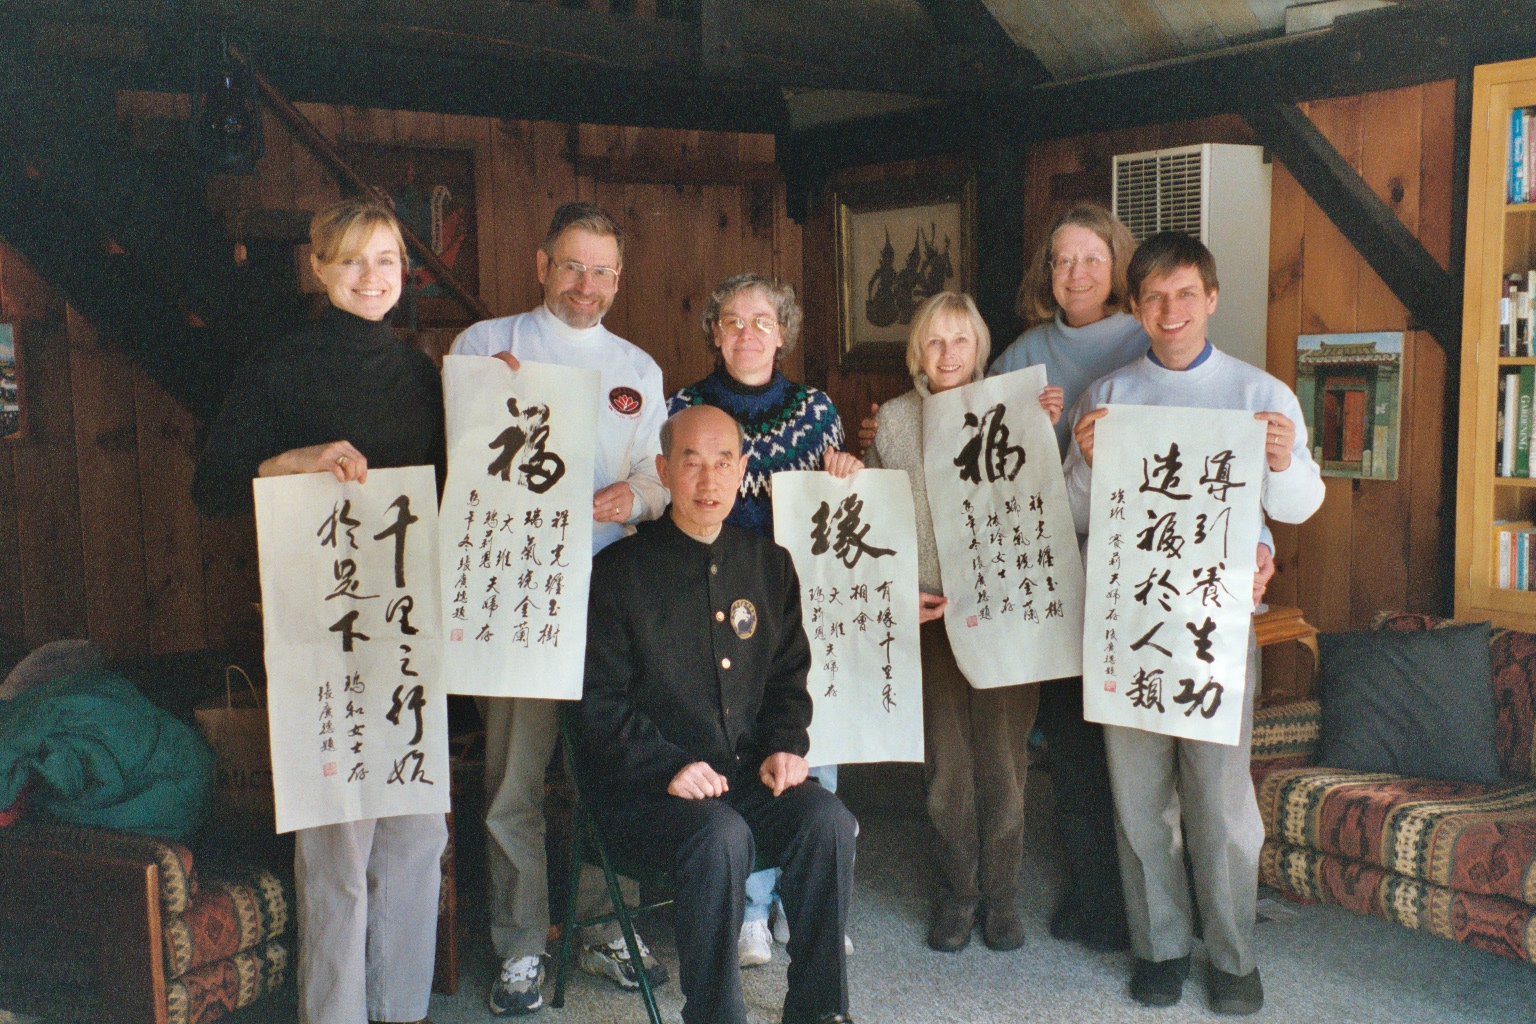 千里之行始
於足下
瑪和女士存
張廣德題
福
祥光纏玉樹
瑞氣繞金蘭
大維
瑪莉恩夫婦存
張廣德題
緣
有緣千里來
相會
大維夫婦存
瑪莉恩
福
祥光纏玉樹
瑞氣繞金蘭
玲女士存
張廣德題
導引養生功
造福於人類
埃維 賽莉夫婦存 張廣德題
GARDENING